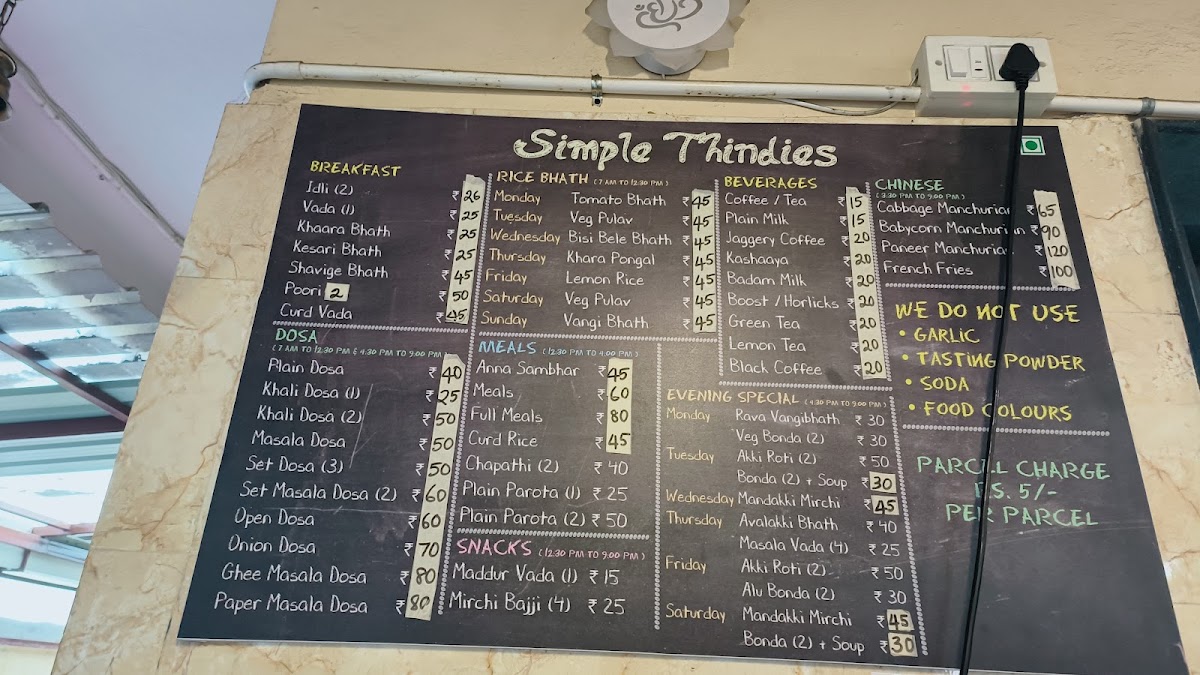 Simple Thindies
BREAKFAST
Idli (2) ₹ 26
Vada (1) ₹ 25
Khaara Bhath ₹ 25
Kesari Bhath ₹ 25
Shavige Bhath ₹ 45
Poori 2 ₹ 50
Curd Vada ₹ 45
DOSA
(7 AM TO 12.30 PM & 4.30 PM TO 9.00 PM)
Plain Dosa ₹ 40
Khali Dosa (1) ₹ 25
Khali Dosa (2) ₹ 50
Masala Dosa ₹ 50
Set Dosa (3) ₹ 50
Set Masala Dosa (2) ₹ 60
Open Dosa ₹ 60
Onion Dosa ₹ 70
Ghee Masala Dosa ₹ 80
Paper Masala Dosa ₹ 80
RICE BHATH (7 AM TO 12.30 PM)
Monday Tomato Bhath ₹ 45
Tuesday Veg Pulav ₹ 45
Wednesday Bisi Bele Bhath ₹ 45
Thursday Khara Pongal ₹ 45
Friday Lemon Rice ₹ 45
Saturday Veg Pulav ₹ 45
Sunday Vangi Bhath ₹ 45
MEALS (12.30 PM TO 4.00 PM)
Anna Sambhar ₹ 45
Meals ₹ 60
Full Meals ₹ 80
Curd Rice ₹ 45
Chapathi (2) ₹ 40
Plain Parota (1) ₹ 25
Plain Parota (2) ₹ 50
SNACKS (12.30 PM TO 9.00 PM)
Maddur Vada (1) ₹ 15
Mirchi Bajji (4) ₹ 25
BEVERAGES
Coffee / Tea ₹ 15
Plain Milk ₹ 15
Jaggery Coffee ₹ 20
Kashaaya ₹ 20
Badam Milk ₹ 20
Boost / Horlicks ₹ 20
Green Tea ₹ 20
Lemon Tea ₹ 20
Black Coffee ₹ 20
EVENING SPECIAL (4.30 PM TO 9.00 PM)
Monday Rava Vangibhath ₹ 30
Veg Bonda (2) ₹ 30
Tuesday Akki Roti (2) ₹ 50
Bonda (2) + Soup ₹ 30
Wednesday Mandakki Mirchi ₹ 45
Thursday Avalakki Bhath ₹ 40
Masala Vada (4) ₹ 25
Friday Akki Roti (2) ₹ 50
Alu Bonda (2) ₹ 30
Saturday Mandakki Mirchi ₹ 45
Bonda (2) + Soup ₹ 30
CHINESE
(3.30 PM TO 9.00 PM)
Cabbage Manchurian ₹ 65
Babycorn Manchurian ₹ 90
Paneer Manchurian ₹ 120
French Fries ₹ 100
WE DO NOT USE
• GARLIC
• TASTING POWDER
• SODA
• FOOD COLOURS
PARCEL CHARGE
RS. 5/-
PER PARCEL